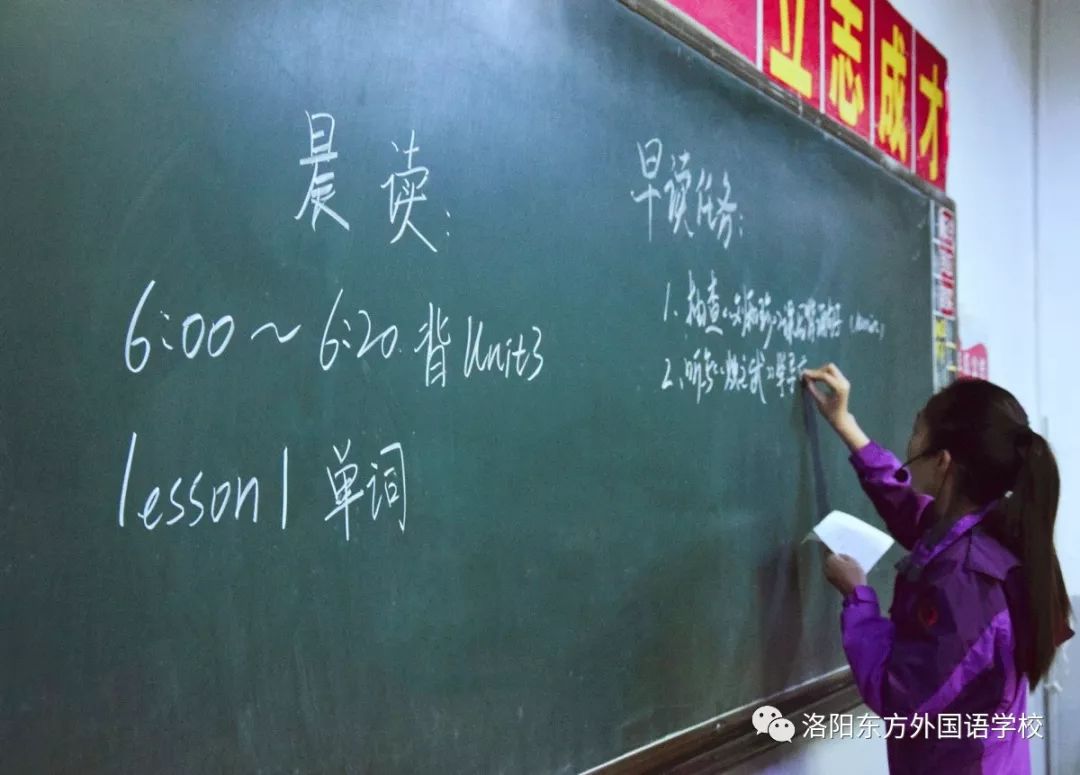 立志成才
晨读:
6:00～6:20 背Unit3
lesson1 单词
早读任务:
1、抽查
2、听写《烛之武》
洛阳东方外国语学校